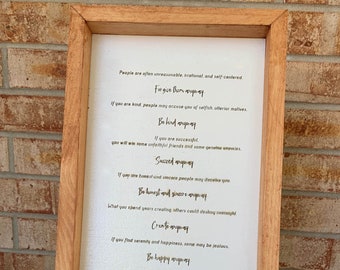 People are often unreasonable, irrational, and self-centered.
Forgive them anyway.
If you are kind, people may accuse you of selfish, ulterior motives.
Be kind anyway.
If you are successful,
you will win some unfaithful friends and some genuine enemies.
Succeed anyway.
If you are honest and sincere people may deceive you.
Be honest and sincere anyway.
What you spend years creating others could destroy overnight.
Create anyway.
If you find serenity and happiness, some may be jealous.
Be happy anyway.